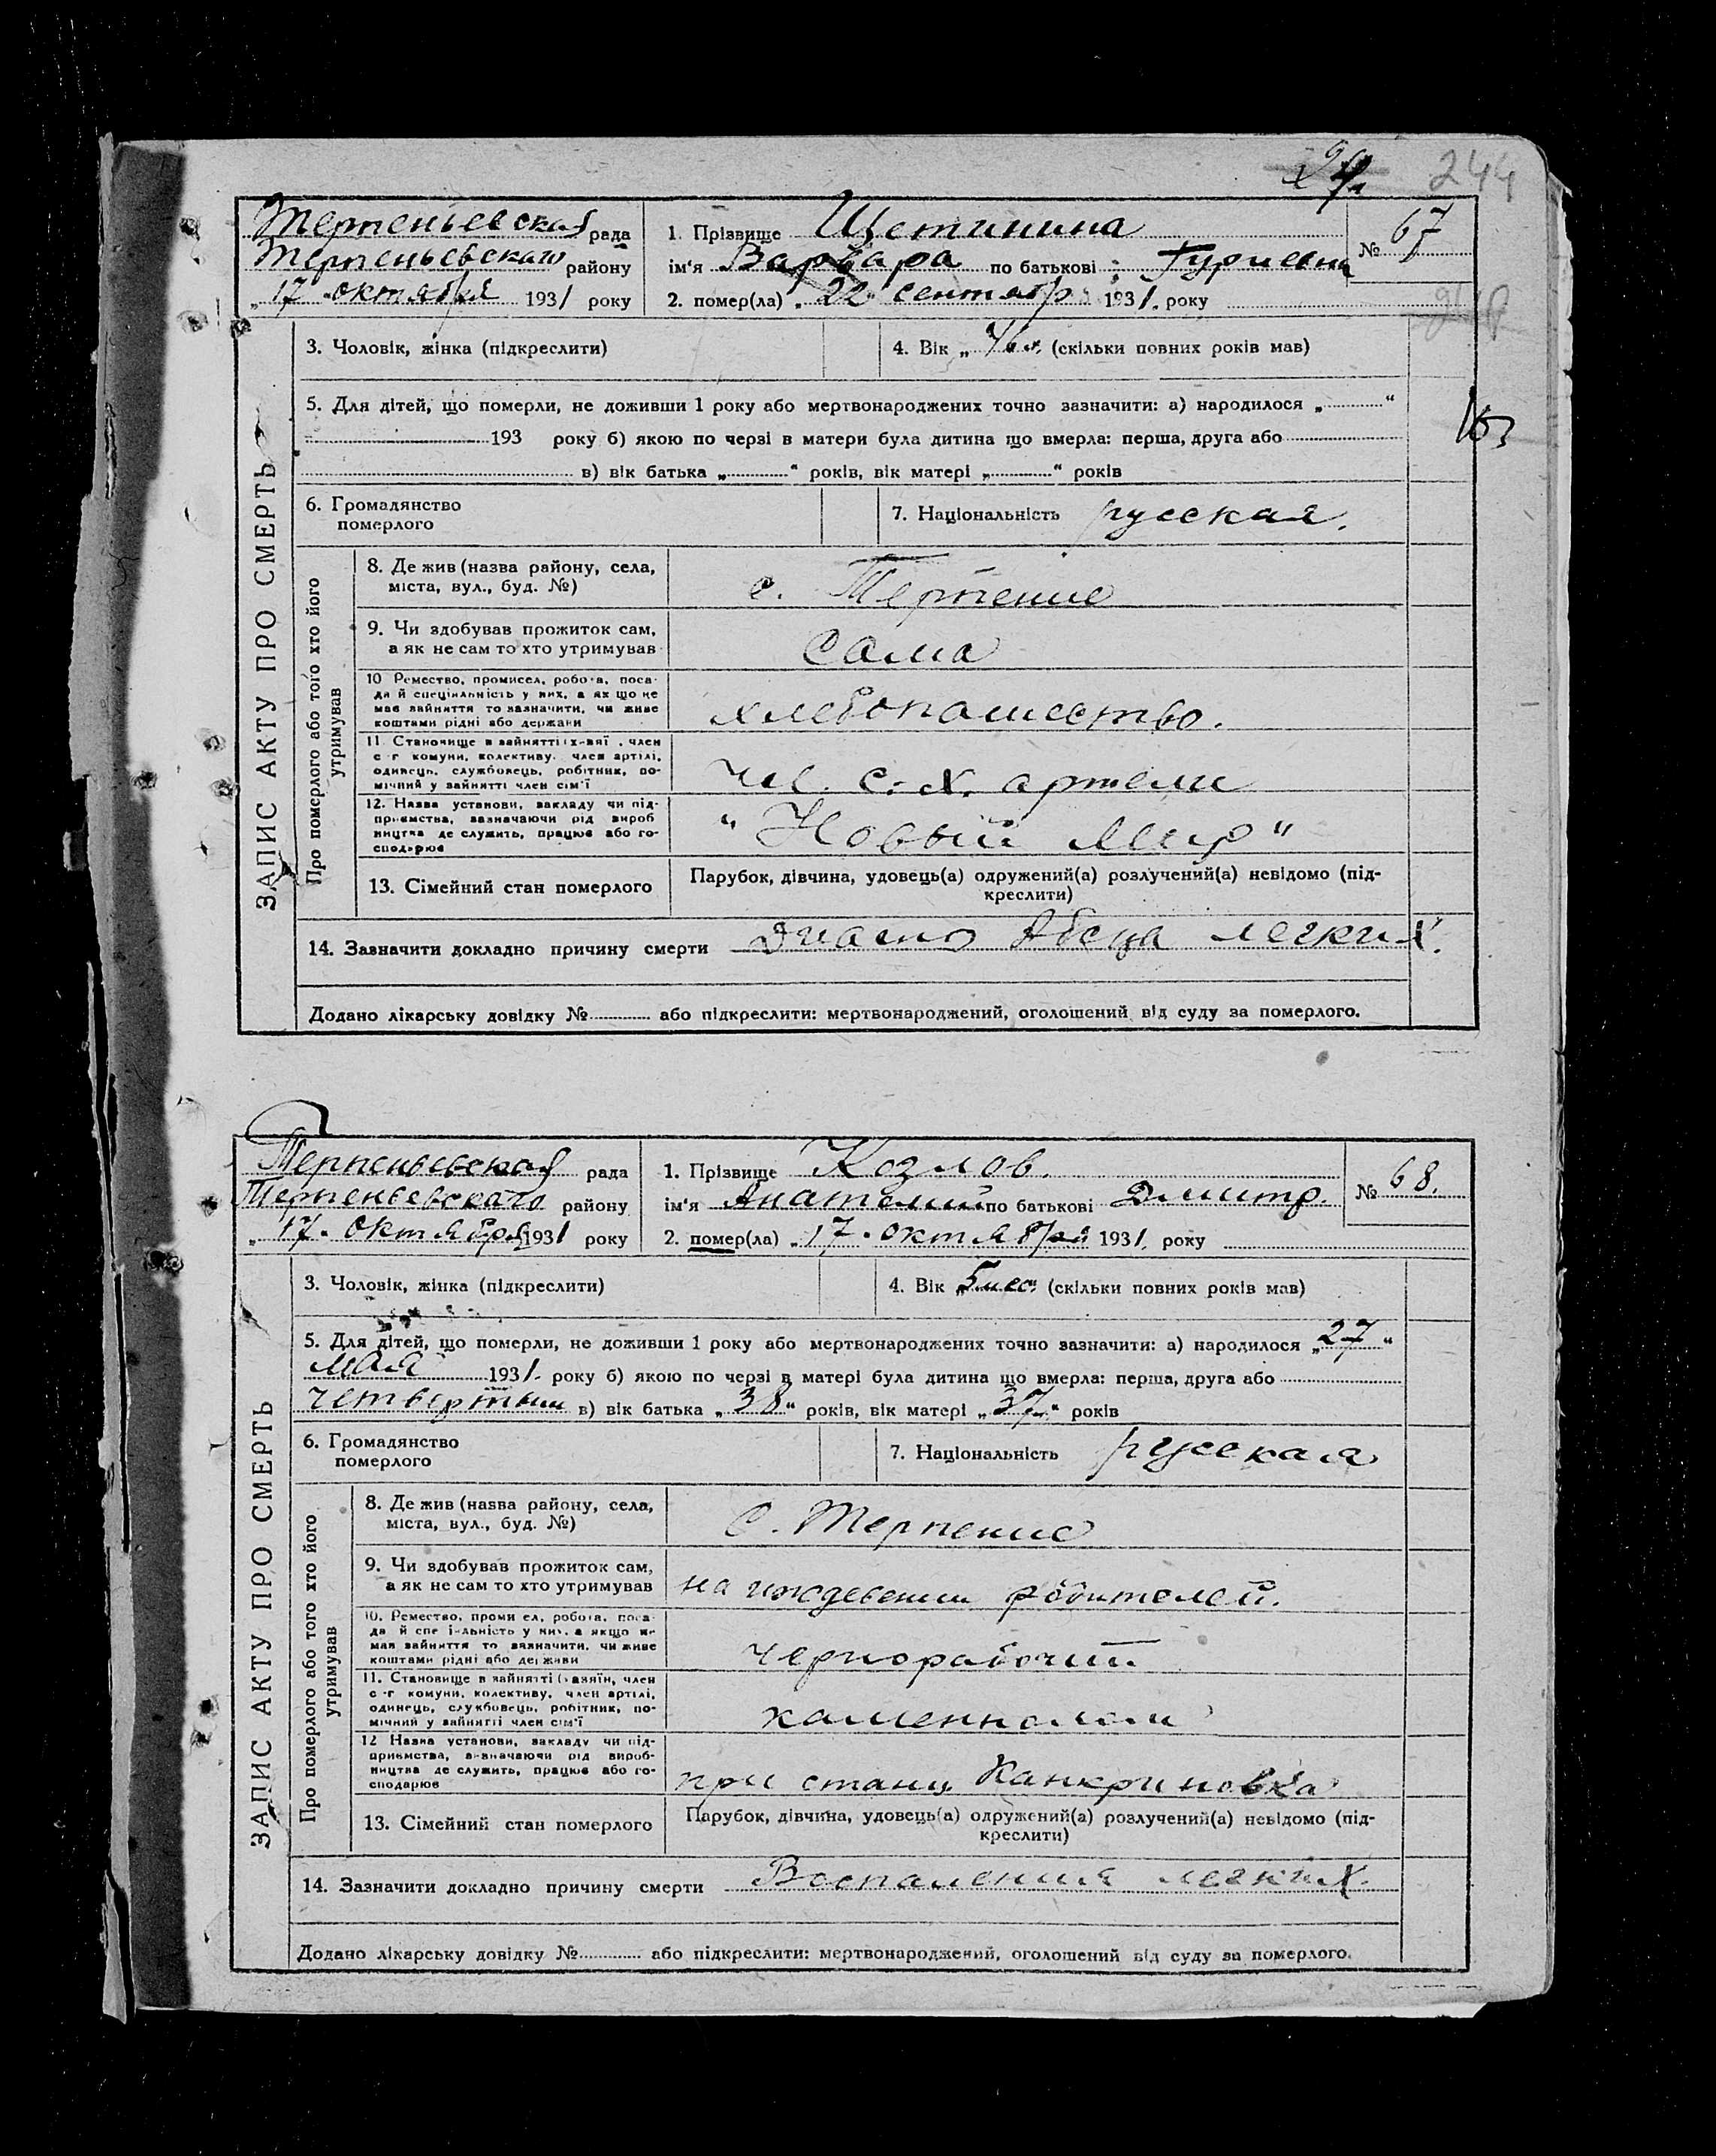 244
Терпеньевская рада
Терпеньевскаго району
„ 17 . октября 1931 року
1. Прізвище Щетинина
ім‘я Варвара по батькові Гуриевна
2. помер(ла) „ 22 сентябр 1931. року
№ 67
3. Чоловік, жінка (підкреслити)
4. Вік „ (скільки повних років мав)
5. Для дітей, що померли, не доживши 1 року або мертвонароджених точно зазначити: а) народилося „ “
193 року б) якою по черзі в матери була дитина що вмерла: перша, друга або
в) вік батька „ “ років, вік матері „ “ років
6. Громадянство
померлого
7. Національність русская.
ЗАПИС АКТУ ПРО СМЕРТЬ
Про померлого або того хто його
утримував
8. Де жив (назва району, села,
міста, вул., буд. №)
с. Терпение
9. Чи здобував прожиток сам,
а як не сам то хто утримував
сама
10 Ремество, промисел, робота, поса-
да й спеціяльність у них, а як що не
має зайняття то зазначити, чи живе
коштами рідні або держави
хлебопашество.
11 Становище в зайнятті член
с-г комуни, колективу, член артілі,
одинець, службовець, робітник, по-
мічний у зайнятті член сім‘ї
чл. с.-х. артели
12. Назва установи, закладу чи під-
приємства, зазначаючи рід вироб
ництва де служить, працює або го-
сподарює
“ Новый Мир “
13. Сімейний стан померлого
Парубок, дівчина, удовець(а) одружений(а) розлучений(а) невідомо (під-
креслити)
14. Зазначити докладно причину смерти легких.
Додано лікарську довідку № або підкреслити: мертвонароджений, оголошений від суду за померлого.
Терпеньевская рада
Терпеньевскаго району
„ 17. октября 1931 року
1. Прізвище Козлов.
ім‘я Анатолий по батькові Дмитр.
2. помер(ла) „ 17. октября 1931. року
№ 68.
3. Чоловік, жінка (підкреслити)
4. Вік „ 5 мес. (скільки повних років мав)
5. Для дітей, що померли, не доживши 1 року або мертвонароджених точно зазначити: а) народилося „ 27 “
мая 1931. року б) якою по черзі в матері була дитина що вмерла: перша, друга або
четвертым в) вік батька „ 38 “ років, вік матері „ 37 “ років
6. Громадянство
померлого
7. Національність русская
ЗАПИС АКТУ ПРО СМЕРТЬ
Про померлого або того хто його
утримував
8. Де жив (назва району, села,
міста, вул., буд. №)
с. Терпение
9. Чи здобував прожиток сам,
а як не сам то хто утримував
на иждевении родителей.
10. Ремество, промисел, робота, поса-
да й спеціяльність у них, а якщо не
має зайняття то зазначити, чи живе
коштами рідні або держави
чернорабочий
11. Становище в зайнятті (хазяїн, член
с-г комуни, колективу, член артілі,
одинець, службовець, робітник, по-
мічний у зайнятті член сім‘ї
каменнолом
12 Назва установи, закладу чи під-
приємства, зазначаючи рід вироб-
ництва де служить, працює або го-
сподарює
при станц Канкриновка
13. Сімейний стан померлого
Парубок, дівчина, удовець(а) одружений(а) розлучений(а) невідомо (під-
креслити)
14. Зазначити докладно причину смерти Воспаления легких.
Додано лікарську довідку № або підкреслити: мертвонароджений, оголошений від суду за померлого.